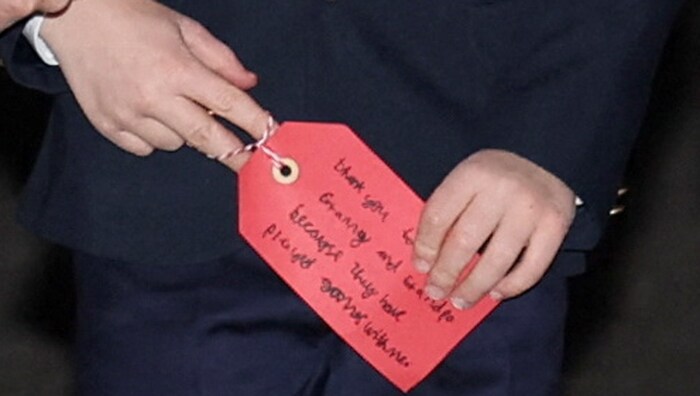 thank you
Granny and Grandpa
because they have
played with me.